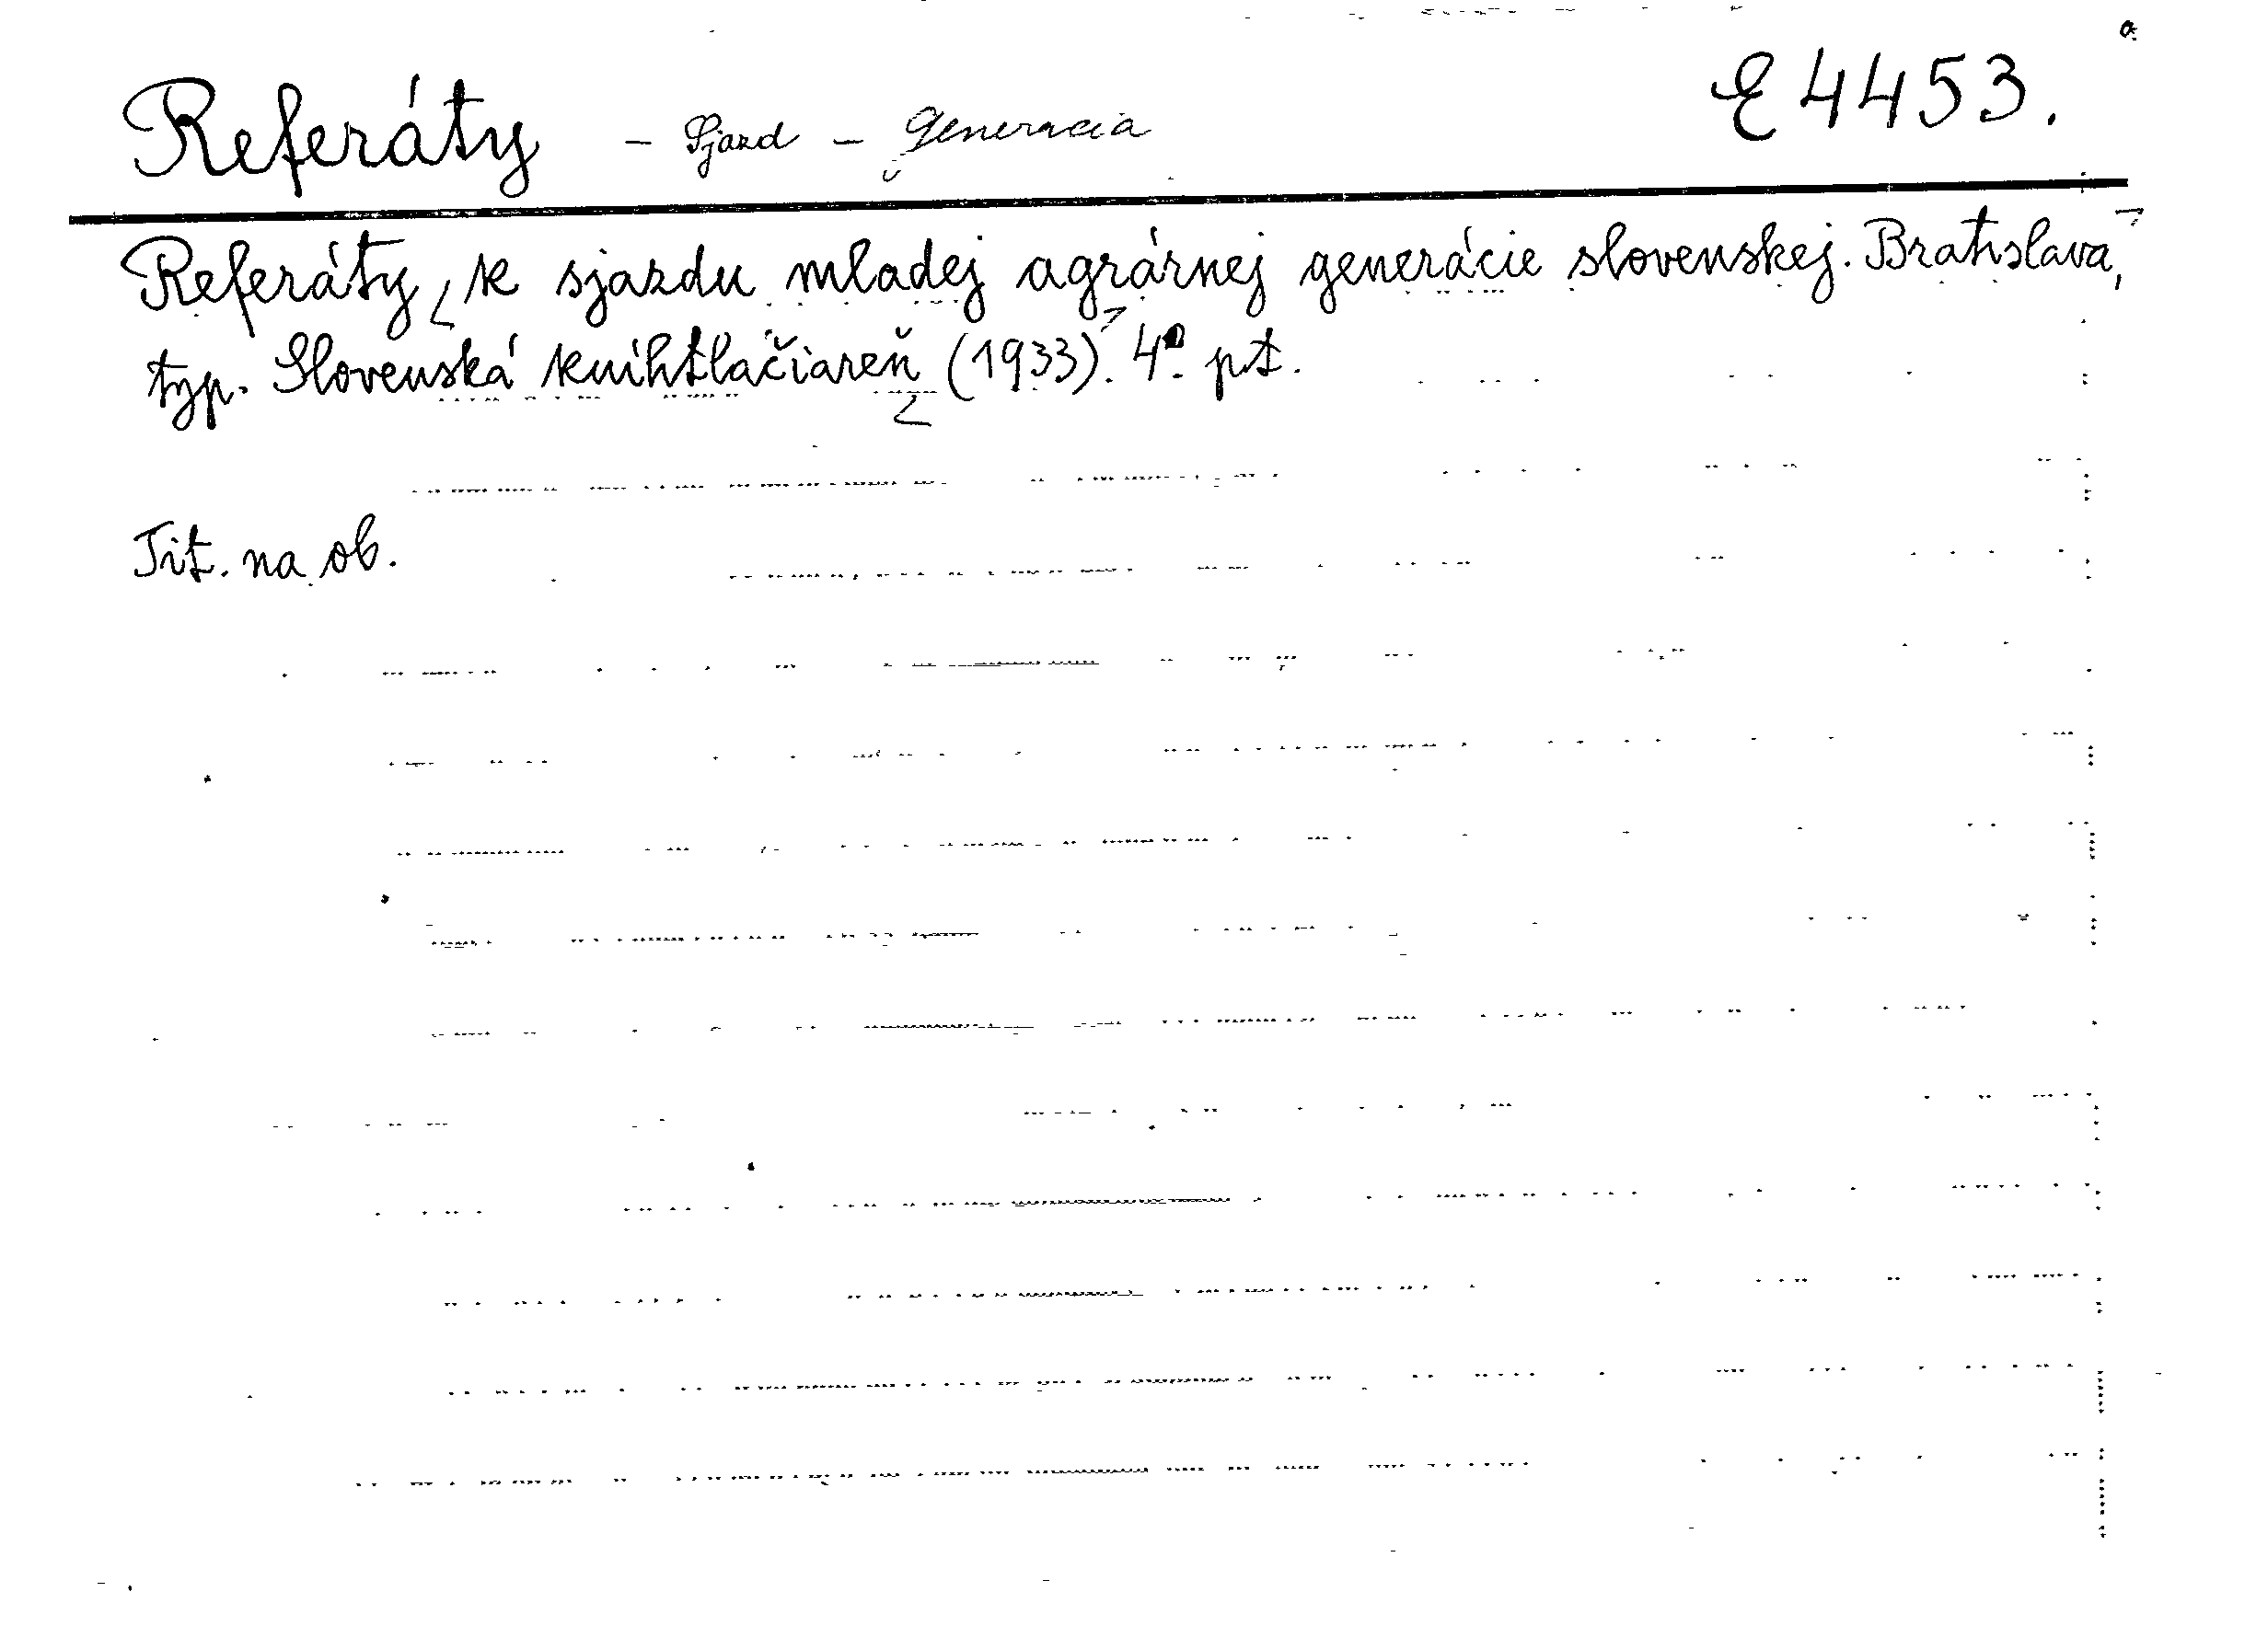 Referáty - Sjazd - generacia E 4453.
Referáty k sjazdu mladej agrárnej generácie slovenskej. Bratislava,
typ. Slovenská knihtlačiareň (1933). 4° pt.
Tit. na ob.